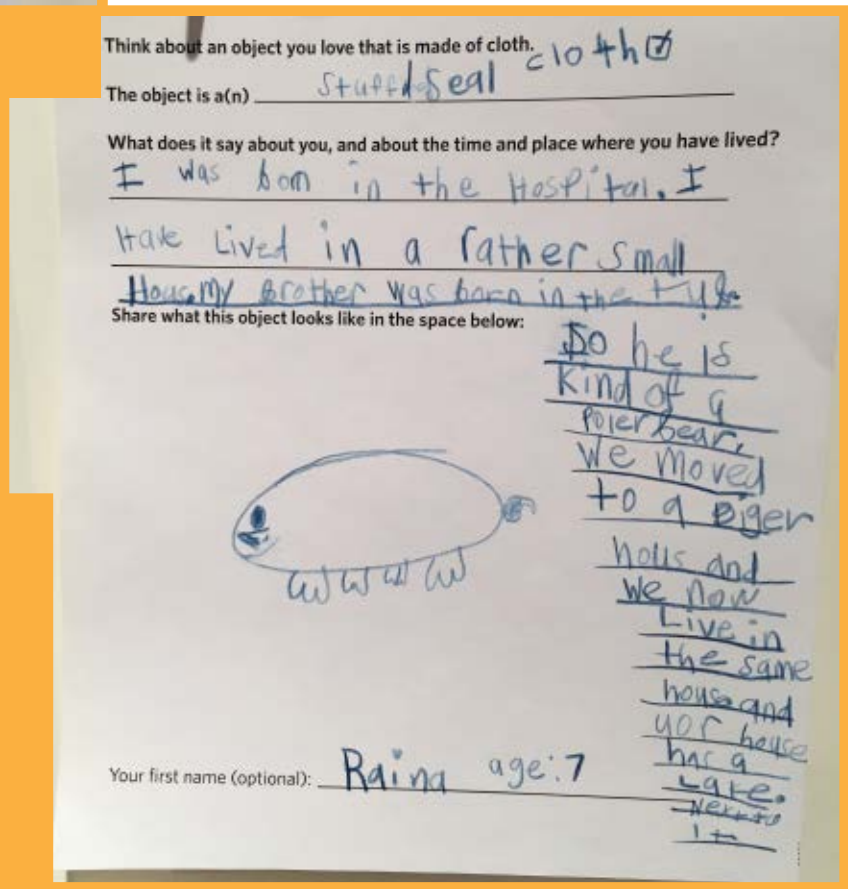 Think about an object you love that is made of cloth. cloth
The object is a(n) Stuffd Seal
What does it say about you, and about the time and place where you have lived?
I was born in the Hospital. I
Have Lived in a rather small
House. My Brother was born in the
Share what this object looks like in the space below:
So he is
Kind of a
Poler bear.
We moved
to a Biger
hous and
We now
Live in
the same
house and
yor house
has a
Lake.
Next to
it
Your first name (optional): Raina age: 7